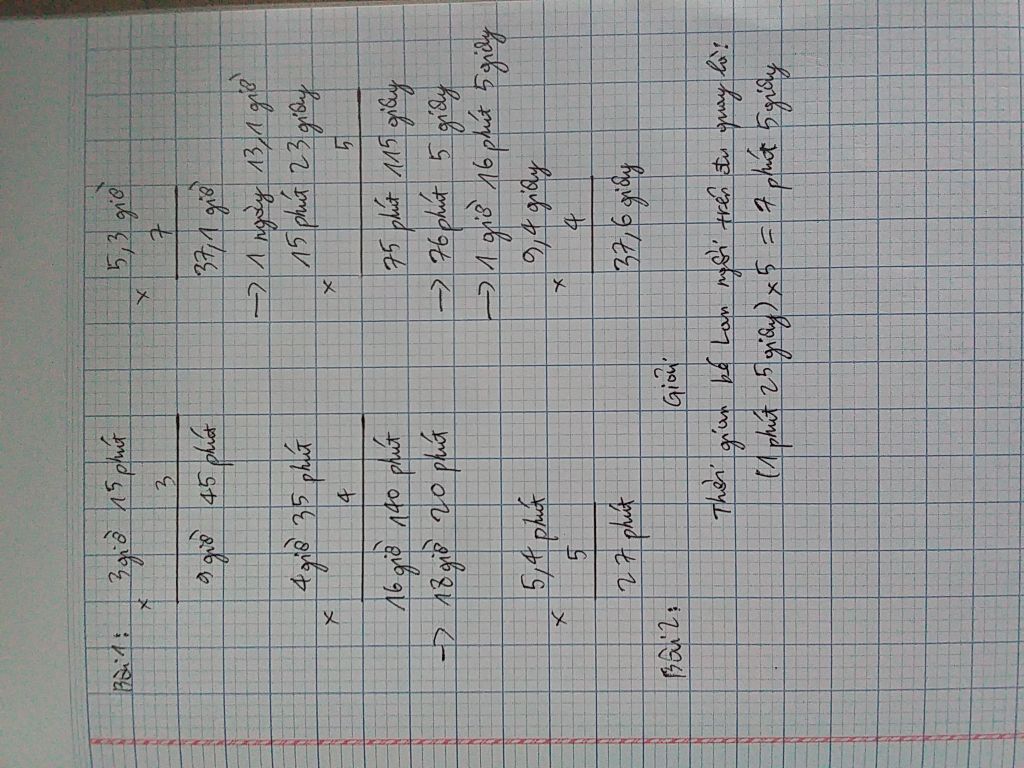 Bài 1:
x 3 giờ 15 phút
3
9 giờ 45 phút
4 giờ 35 phút
x 4
16 giờ 140 phút
-> 18 giờ 20 phút
5,4 phút
x 5
27 phút
5,3 giờ
x 7
37,1 giờ
-> 1 ngày 13,1 giờ
15 phút 23 giây
x 5
75 phút 115 giây
-> 76 phút 5 giây
-> 1 giờ 16 phút 5 giây
9,4 giây
x 4
37,6 giây
Bài 2:
Giải
Thời gian bé Lan ngồi trên đu quay là:
(1 phút 25 giây) x 5 = 7 phút 5 giây